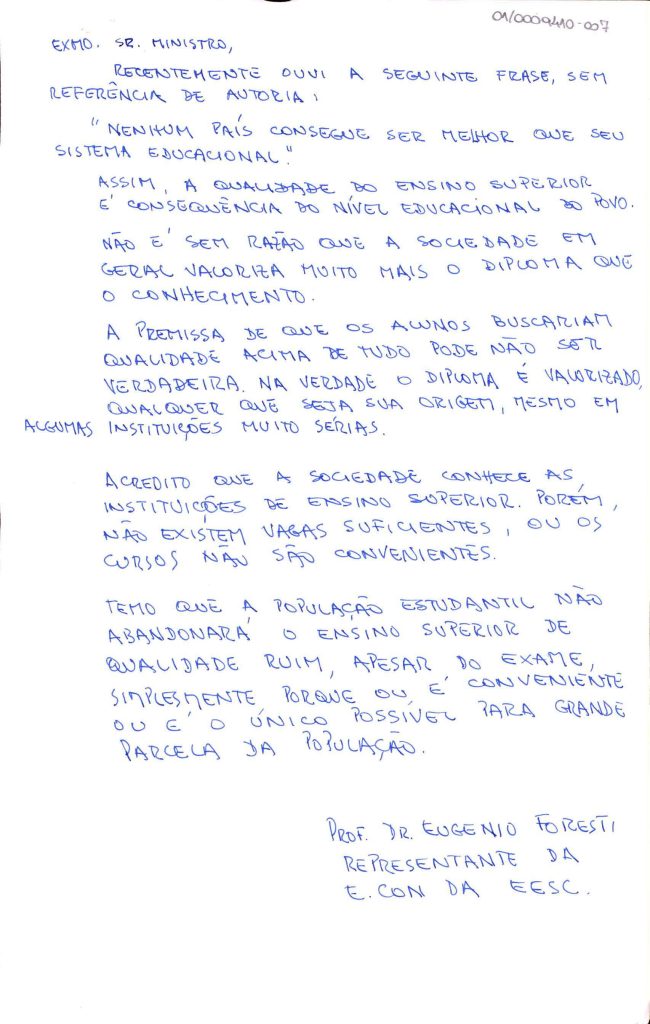 01/0009410-007
EXMO. SR. MINISTRO,
RECENTEMENTE OUVI A SEGUINTE FRASE, SEM
REFERÊNCIA DE AUTORIA:
"NENHUM PAÍS CONSEGUE SER MELHOR QUE SEU
SISTEMA EDUCACIONAL."
ASSIM, A QUALIDADE DO ENSINO SUPERIOR
É CONSEQUÊNCIA DO NÍVEL EDUCACIONAL DO POVO.
NÃO É SEM RAZÃO QUE A SOCIEDADE EM
GERAL VALORIZA MUITO MAIS O DIPLOMA QUE
O CONHECIMENTO.
A PREMISSA DE QUE OS ALUNOS BUSCARIAM
QUALIDADE ACIMA DE TUDO PODE NÃO SER
VERDADEIRA. NA VERDADE O DIPLOMA É VALORIZADO,
QUALQUER QUE SEJA SUA ORIGEM, MESMO EM
ALGUMAS INSTITUIÇÕES MUITO SÉRIAS.
ACREDITO QUE A SOCIEDADE CONHECE AS
INSTITUIÇÕES DE ENSINO SUPERIOR. PORÉM,
NÃO EXISTEM VAGAS SUFICIENTES, OU OS
CURSOS NÃO SÃO CONVENIENTES.
TEMO QUE A POPULAÇÃO ESTUDANTIL NÃO
ABANDONARÁ O ENSINO SUPERIOR DE
QUALIDADE RUIM, APESAR DO EXAME,
SIMPLESMENTE PORQUE OU É CONVENIENTE
OU É O ÚNICO POSSÍVEL PARA GRANDE
PARCELA DA POPULAÇÃO.
PROF. DR. EUGENIO FORESTI
REPRESENTANTE DA
E.CON DA EESC.